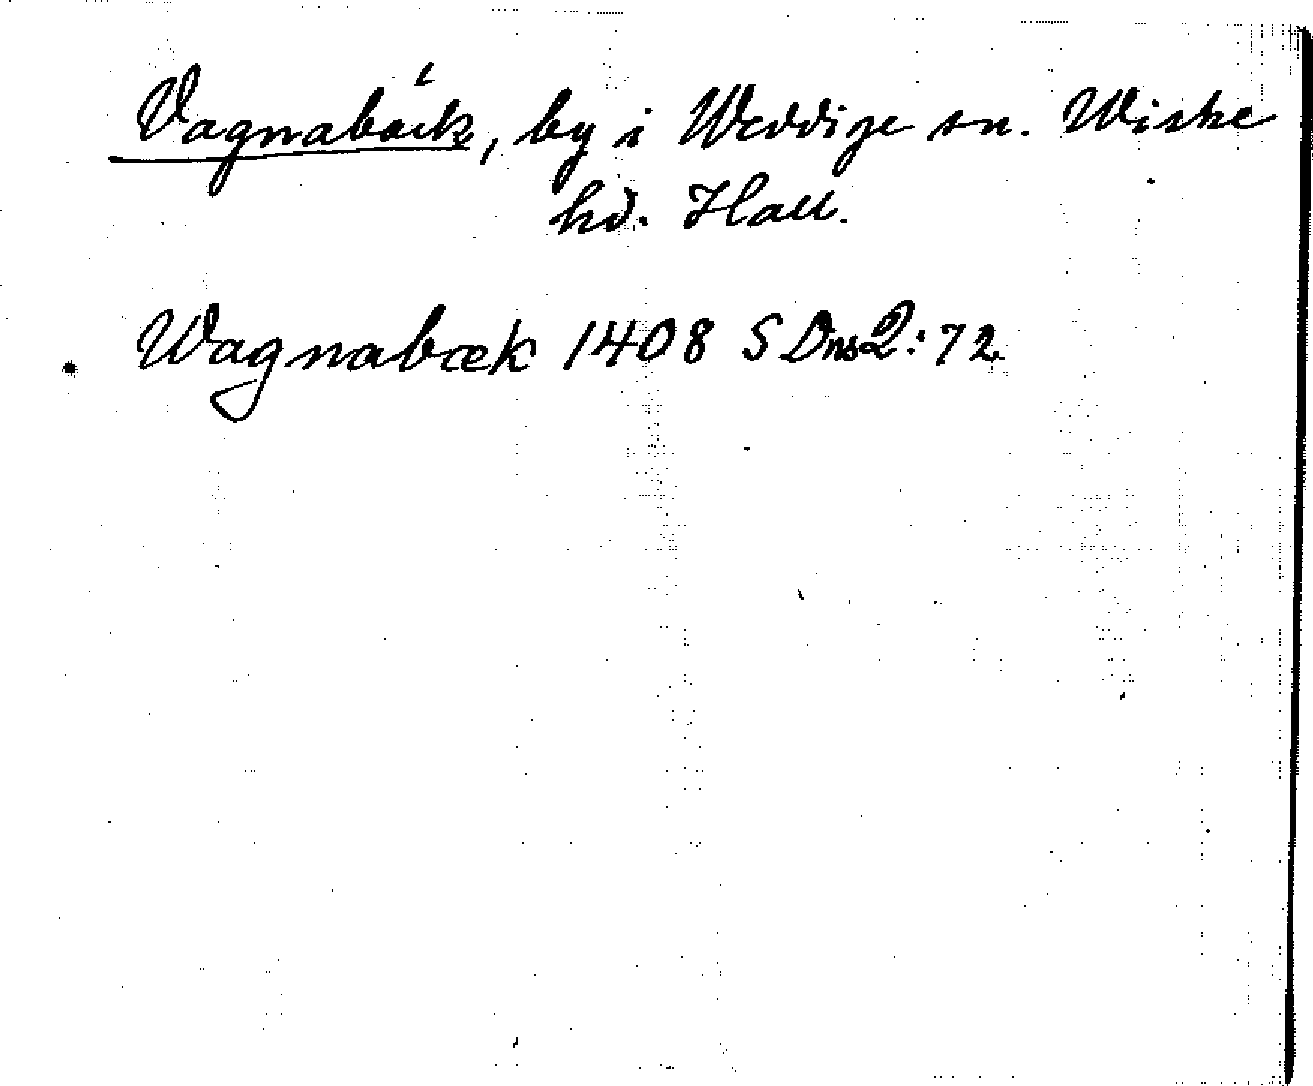 Vagnabäck, by i Weddige sn. Wiske
hd. Hall.
Wagnabæk 1408 SDns2:72